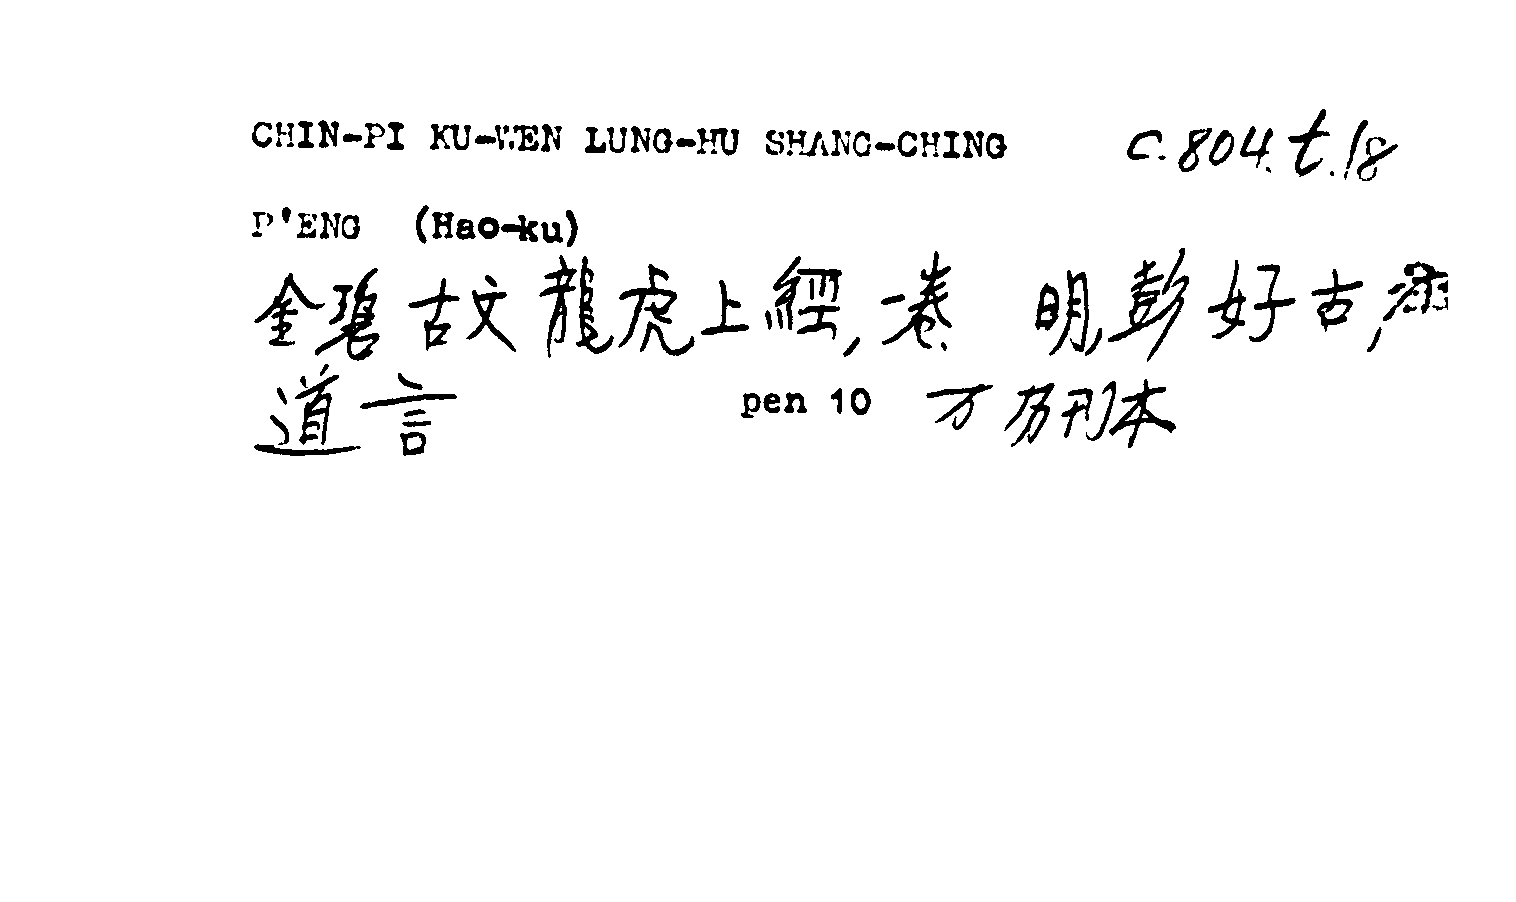 CHIN-PI KU-WEN LUNG-HU SHANG-CHING c.804.t.18
P'ENG (Hao-ku)
金碧古文龍虎上經,一卷 明,彭好古,
道言 pen 10 万历刊本